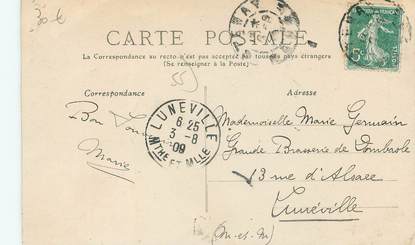 30 €
CARTE POSTALE
La Correspondance au recto n'est pas acceptée par tous les pays étrangers
(Se renseigner à la Poste)
55
Correspondance
Adresse
Bon
Marie
LUNEVILLE
6 25
3 -8
09
MTHE ET MLLE
5c
Mademoiselle Marie Germain
Grande Brasserie de Dombasle
13 rue d'Alsace
Lunéville
(M-et-M)